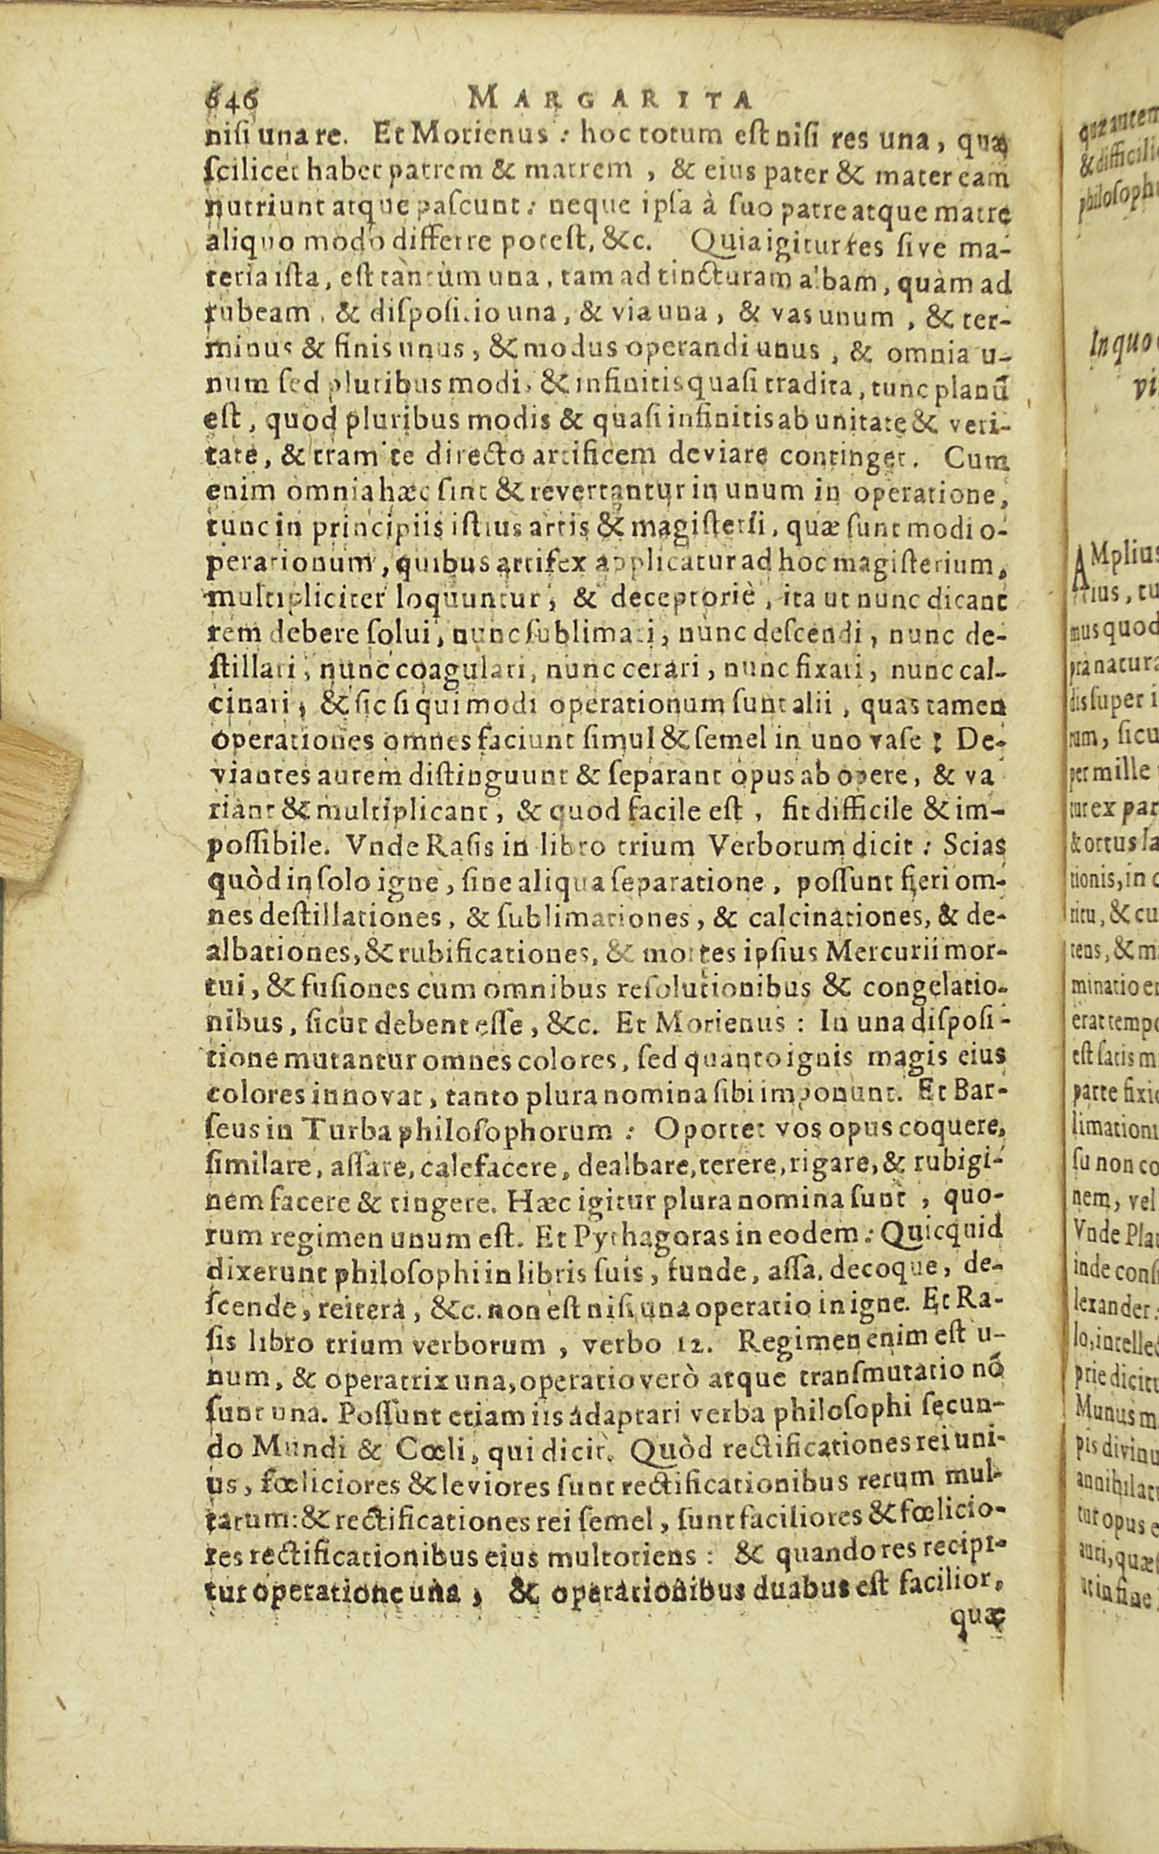 646 MARGARITA
nisi una re. Et Morienus: hoc totum est nisi res una, quæ
scilicet habet patrem & matrem, & eius pater & mater eam
nutriunt atque pascunt: neque ipsa à suo patre atque matre
aliquo modo differre potest, &c. Quia igitur res sive ma-
teria ista, est tàntùm una, tam ad tincturam albam, quàm ad
rubeam, & dispositio una, & via una, & vas unum, & ter-
minus & finis unus, & modus operandi unus, & omnia u-
num sed pluribus modis & infinitis quasi tradita, tunc planũ
est, quod pluribus modis & quasi infinitis ab unitate & veri-
tate, & tramite directo artificem deviare continget. Cum
enim omnia hæc sint & revertantur in unum in operatione,
tunc in principiis istius artis & magisterii, quæ sunt modi o-
perationum, quibus artifex applicatur ad hoc magisterium,
multipliciter loquuntur, & deceptoriè, ita ut nunc dicant
rem debere solui, nunc sublimari, nunc descendi, nunc de-
stillari, nunc coagulari, nunc cerari, nunc fixari, nunc cal-
cinari, & sic si qui modi operationum sunt alii, quas tamen
operationes omnes faciunt simul & semel in uno vase: De-
viantes autem distinguunt & separant opus ab opere, & va
riant & multiplicant, & quod facile est, fit difficile & im-
possibile. Vnde Rasis in libro trium Verborum dicit: Scias
quòd in solo igne, sine aliqua separatione, possunt fieri om-
nes destillationes, & sublimationes, & calcinationes, & de-
albationes, & rubificationes, & mortes ipsius Mercurii mor-
tui, & fusiones cum omnibus resolutionibus & congelatio-
nibus, sicut debent esse, &c. Et Morienus: In una disposi-
tione mutantur omnes colores, sed quanto ignis magis eius
colores innovat, tanto plura nomina sibi imponunt. Et Bar-
seus in Turba philosophorum: Oportet vos opus coquere,
similare, assare, calefacere, dealbare, terere, rigare, & rubigi-
nem facere & tingere. Hæc igitur plura nomina sunt, quo-
rum regimen unum est. Et Pythagoras in eodem: Quicquid
dixerunt philosophi in libris suis, funde, assa, decoque, de-
scende, reitera, &c. non est nisi una operatio in igne. Et Ra-
sis libro trium verborum, verbo 12. Regimen enim est u-
num, & operatrix una, operatio verò atque transmutatio nõ
sunt una. Possunt etiam iis adaptari verba philosophi secun-
do Mundi & Cœli, qui dicit. Quòd rectificationes rei uni-
us, fœliciores & leviores sunt rectificationibus rerum mul-
tarum: & rectificationes rei semel, sunt faciliores & fœlicio-
res rectificationibus eius multotiens: & quando res recipi-
tur operatione una, & operationibus duabus est facilior,
quæ
In quo
vi
AMplius
rius, tu
mus quod
pra natura
dis super i
rum, sicu
per mille
tur ex par
& ortus la
tionis, in c
ritu, & cu
tens, & m
minatio er
erat tempo
est satis m
parte fixi
limation
su non co
nem, vel
Vnde Pla
inde cons
lexander:
lo, intelle
prie dicit
Munus m
pis divinu
annihilat
tur opus e
auri, quæ